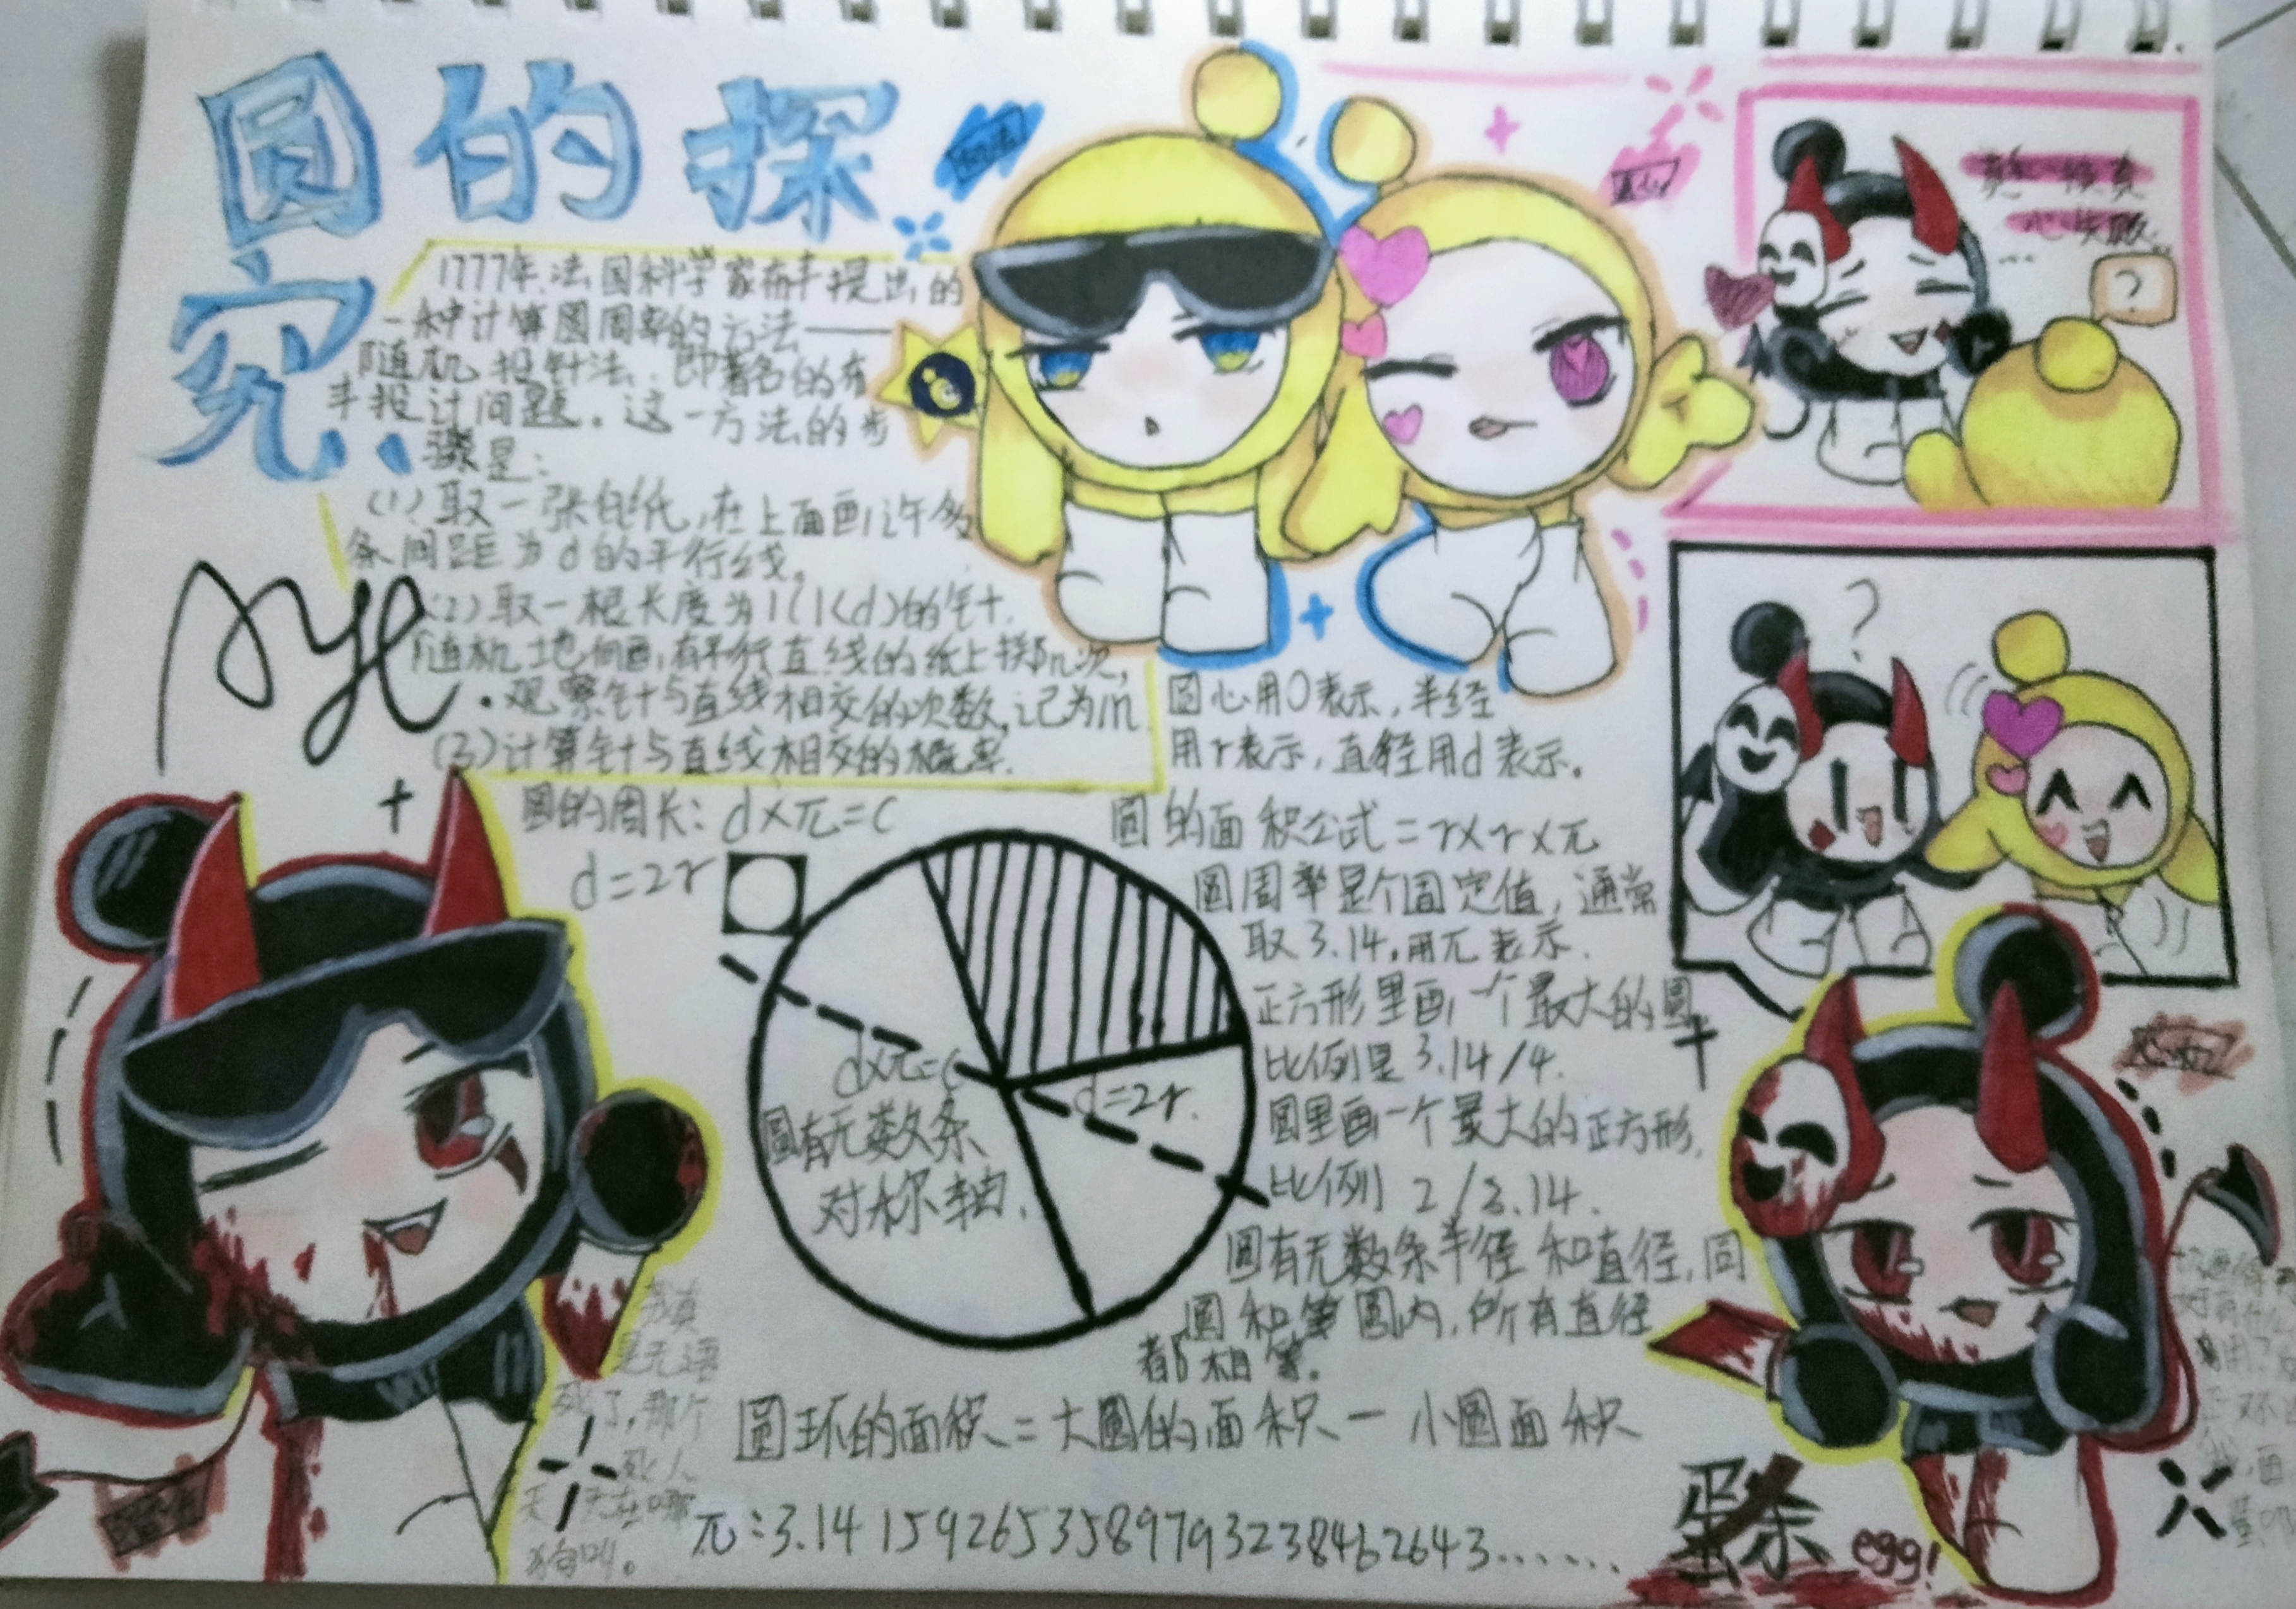 圆的探
究
1777年,法国科学家布丰提出的
一种计算圆周率的方法——
随机投针法,即著名的布
丰投计问题。这一方法的步
骤是:
(1)取一张白纸,在上面画许多
条间距为d的平行线。
(2)取一根长度为l(l<d)的针,
随机地向画有平行直线的纸上掷n次,
观察针与直线相交的次数,记为m
(3)计算针与直线相交的概率.
圆心用O表示,半径
用r表示,直径用d表示。
圆的周长:d×π=c
d=2r
圆的面积公式=r×r×π
圆周率是个固定值,通常
取3.14,用π表示.
正方形里画一个最大的圆
比例是3.14/4.
圆里画一个最大的正方形,
比例 2/3.14.
圆有无数条半径和直径,同
圆和等圆内,所有直径
都相等。
d×π=c
d=2r.
圆有无数条
对称轴.
圆环的面积=大圆的面积-小圆面积
π:3.141592653589793238462643......
?
?
心失败
我真
是无语
死了,那个
死人
天天在哪
狗叫。
蛋杀
egg!